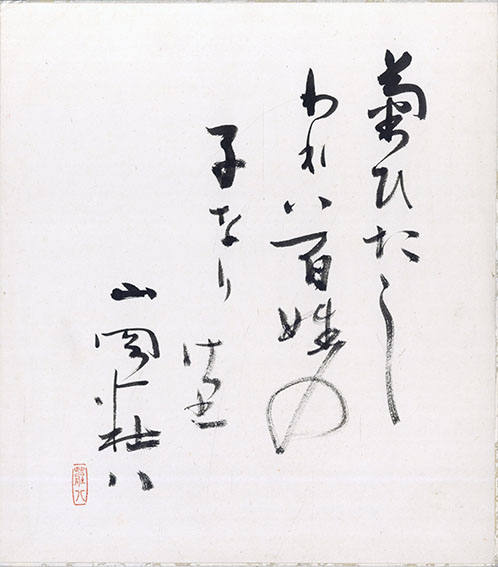 菊ひたし
われハ百姓の
子なりけ里
山岡荘八